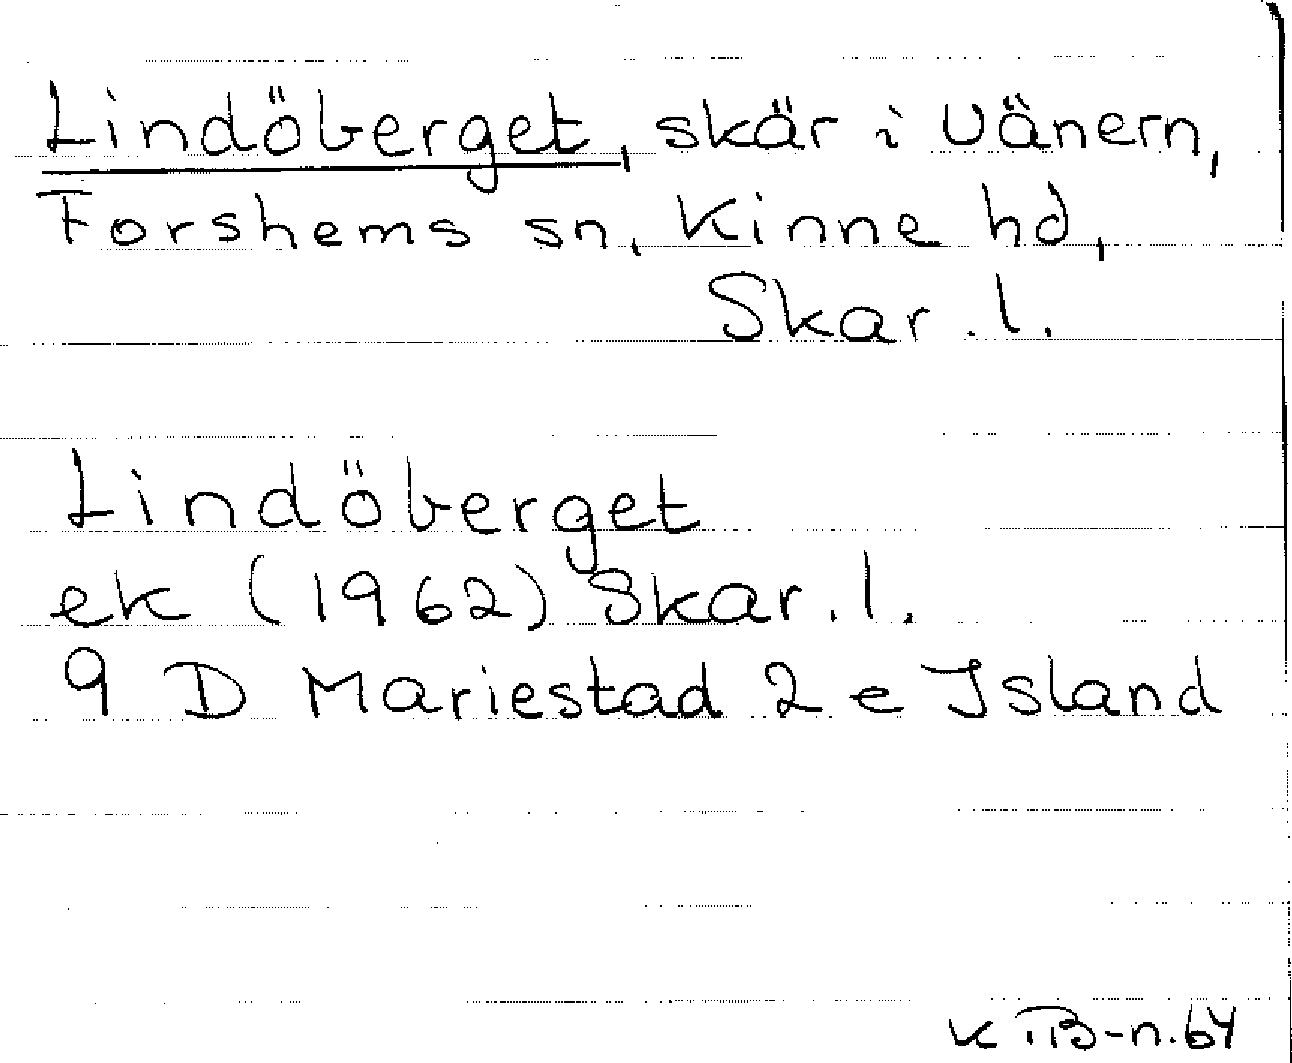 Lindöberget, skär i Vänern,
Forshems sn, Kinne hd,
Skar. l.
Lindöberget
ek (1962) Skar. l.
9 D Mariestad 2 e Island